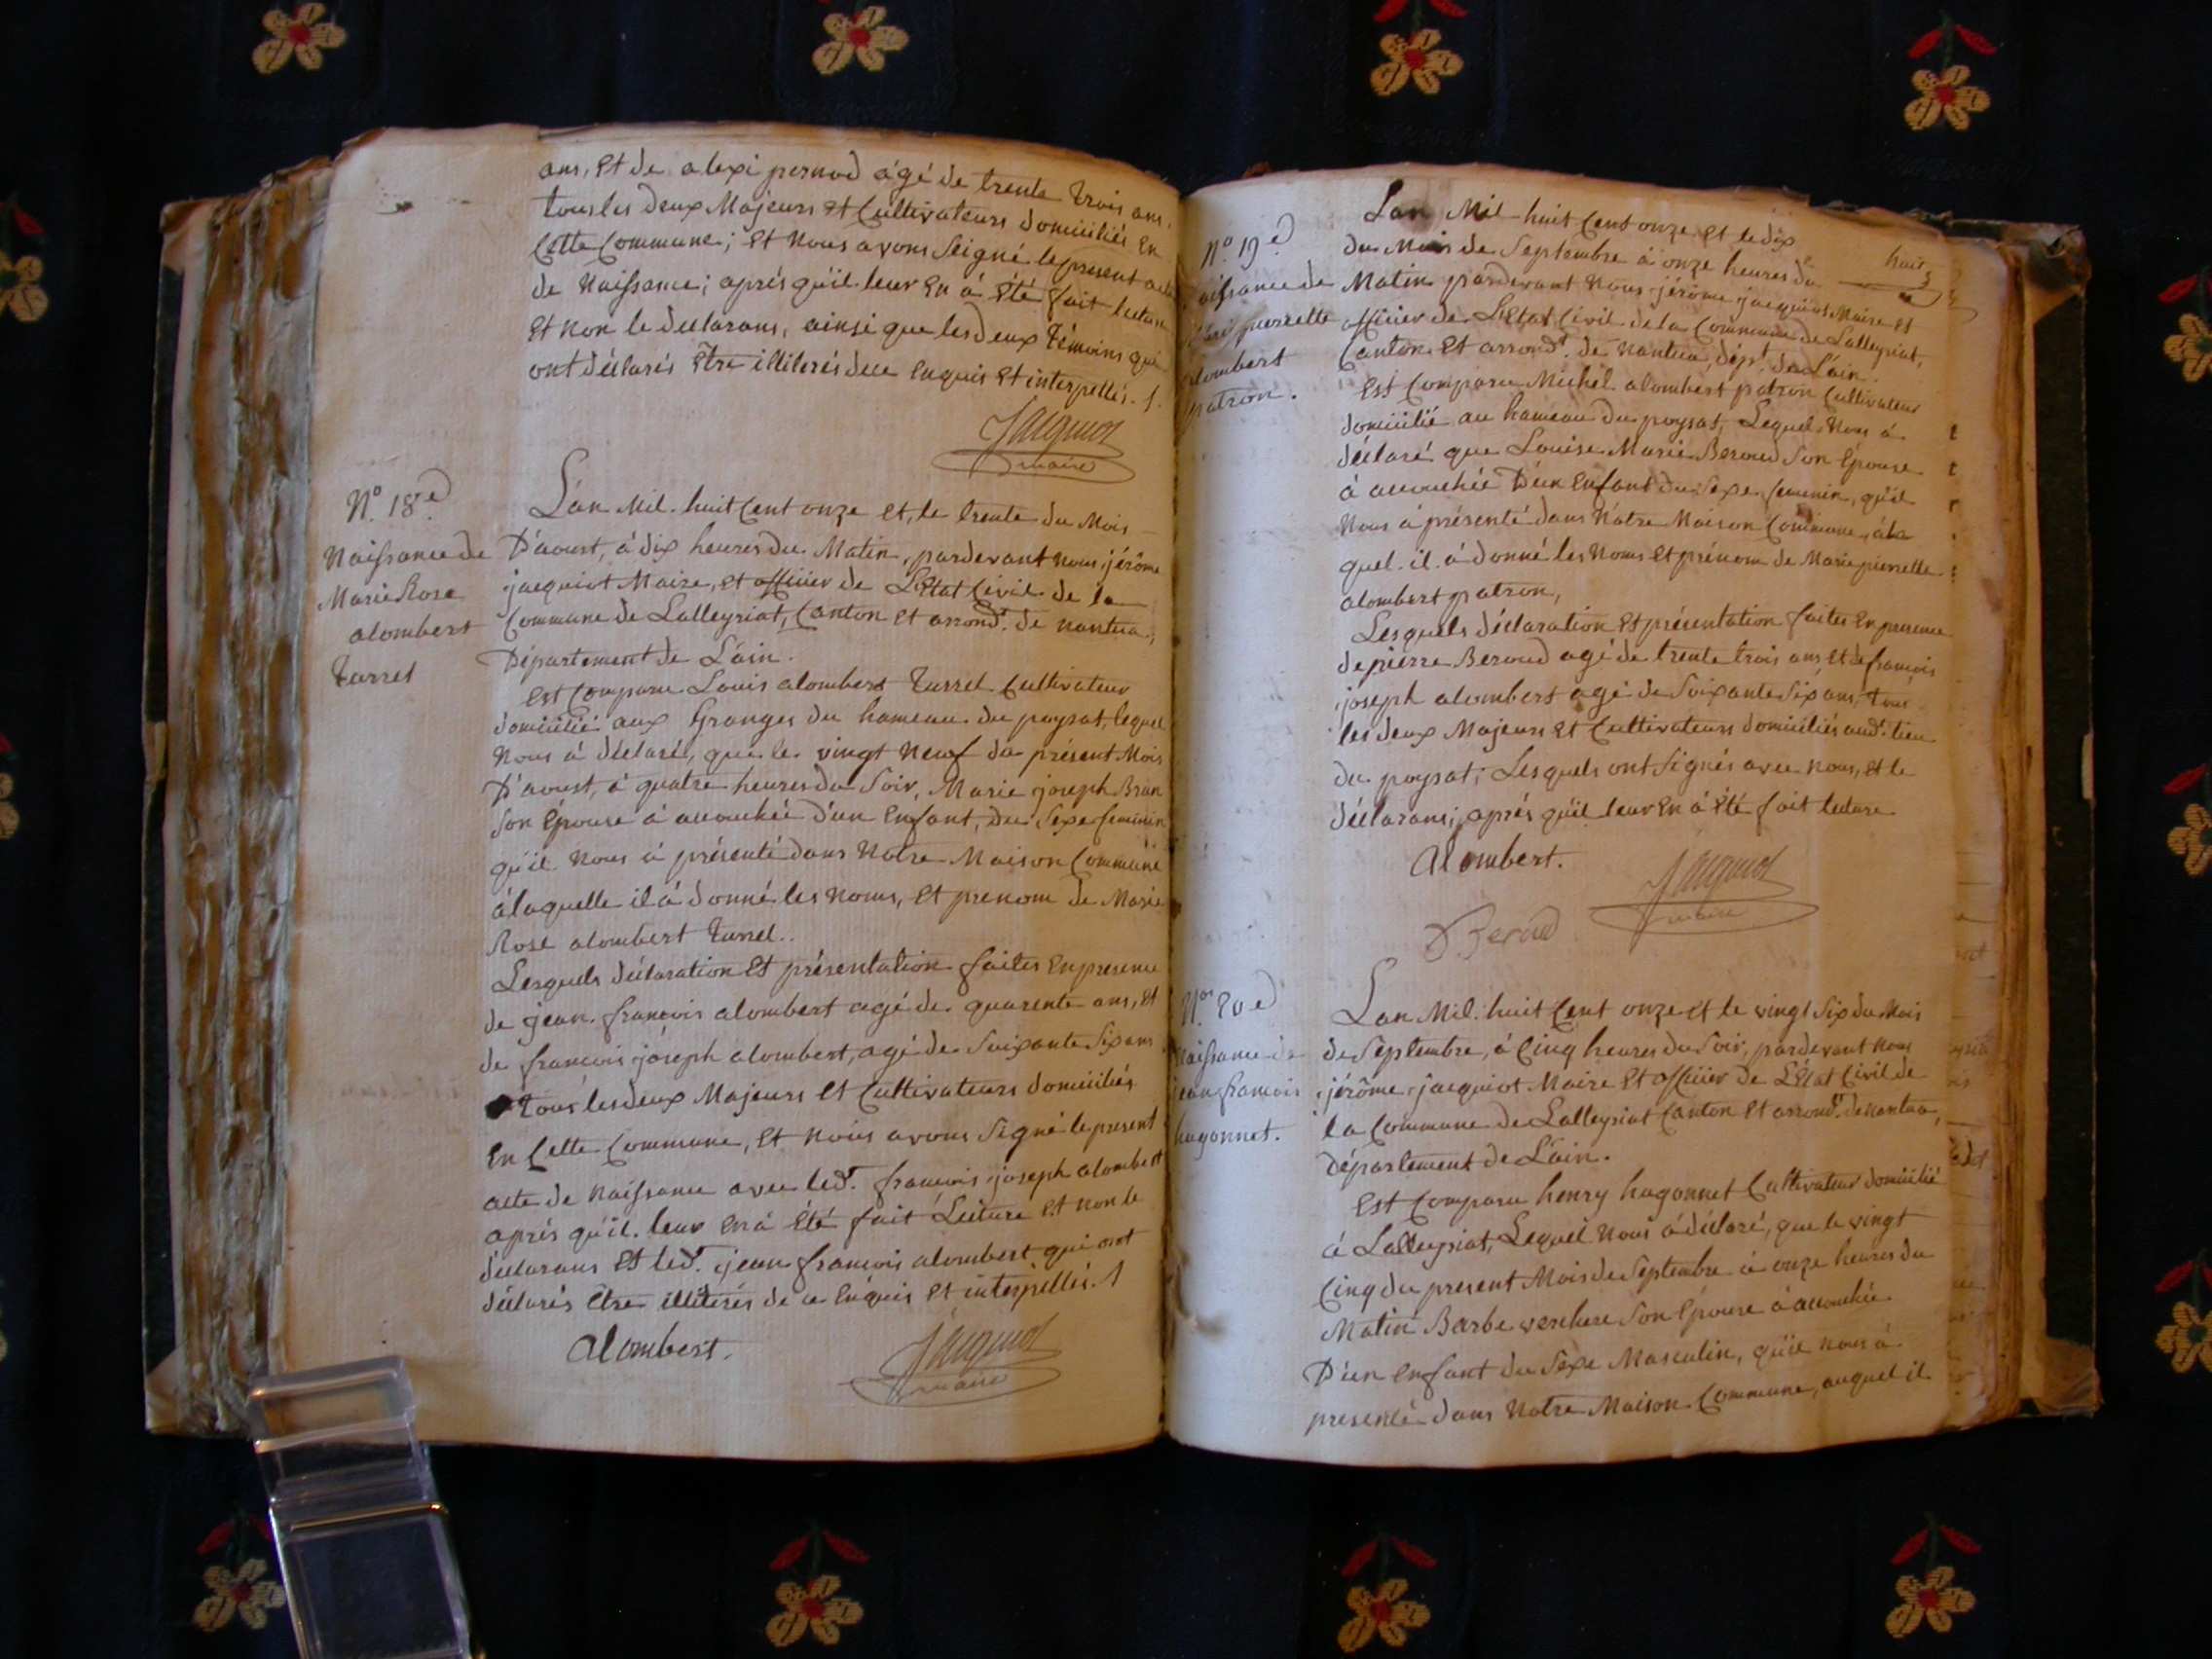 ans, Et de alexi pernod ágé de trente trois ans,
tous les deux Majeurs et Cultivateurs domiciliés En
Cette Commune; Et Nous avons Seigné le present acte
de Naissance; aprés qu'il leur En á été fait lecture
Et non le declarans, ainsi que les deux témoins qui
ont déclarés Etre illiterés de ce Enquis Et interpellés.
Jacquiot
maire
N.° 18.e
Naissance de
Marie Rose
alombert
Turrel
L'an Mil huit Cent onze et, le trente du Mois
D'aoust, á dix heures du Matin, pardevant nous jérôme
jacquiot Maire, et officier de L'Etat Civil de la
Commune de Lalleyriat, Canton et arrond.t de nantua,
Département de L'ain.
Est Comparu Louis alombert Turrel Cultivateur
domicilié aux Granges du hameau du poysat, lequel
Nous á declaré, que le vingt neuf du présent Mois
D'aoust, á quatre heures du Soir, Marie joseph Brun
Son Epouse á accouchée d'un Enfant, du Sexe feminin
qu'il Nous á présenté dans Notre Maison Commune
álaquelle il á donné les Noms, et prenom de Marie
Rose alombert Turrel..
Lesquels déclaration Et présentation faites En presence
de jean françois alombert agé de quarente ans, et
de françois joseph alombert, agé de Soixante Six ans
tous les deux Majeurs et Cultivateurs domiciliés
En Cette Commune, Et Nous avons Signé le present
acte de Naissance avec led.t françois joseph alombert
aprés qu'il leur En á été fait Lecture Et non le
déclarans Et led.t jean françois alombert qui ont
déclarés Etre illiterés de ce Enquis Et interpellés.
alombert.
Jacquiot
maire
huit
N.° 19.e
Naissance de
Marie pierrette
alombert
patron.
Lan Mil huit Cent onze et le dix
du Mois de Septembre á onze heures du
Matin pardevant Nous jérôme jacquiot Maire et
officier de L'Etat Civil de la Commune de Lalleyriat,
Canton et arrond.t de Nantua, dép.t de L'ain.
Est Comparu Michel alombert patron Cultivateur
domicilié au hameau du poysat, Lequel Nous á
déclaré que Louise Marie Beroud Son Epouse
á accouchée D'un Enfant du Sexe feminin, qu'il
Nous á présenté dans Notre Maison Commune, á la
quel il á donné les Noms et prénom de Marie pierrette
alombert patron,
Lesquels déclaration Et présentation faites En presence
de pierre Beroud agé de trente trois ans Et de françois
joseph alombert agé de Soixante Six ans, tous
les deux Majeurs et Cultivateurs domiciliés aud.t lieu
du poysat; Lesquels ont Signés avec Nous, et le
déclarans; aprés qu'il leur En á été fait lecture
alombert.
Jacquiot
maire
Beroud
N.° 20.e
Naissance de
jean françois
hugonnet.
Lan Mil huit Cent onze et le vingt Six du Mois
de Septembre, á Cinq heures du Soir, pardevant Nous
jérôme jacquiot Maire et officier de L'Etat Civil de
la Commune de Lalleyriat Canton et arrond.t de nantua,
Département de L'ain.
Est Comparu henry hugonnet Cultivateur domicilié
á Lalleyriat, Lequel Nous á déclaré, que le vingt
Cinq du present Mois de Septembre á onze heures du
Matin Barbe verchere Son Epouse á accouchée
D'un Enfant du Sexe Masculin, qu'il Nous á
presenté dans Notre Maison Commune, auquel il